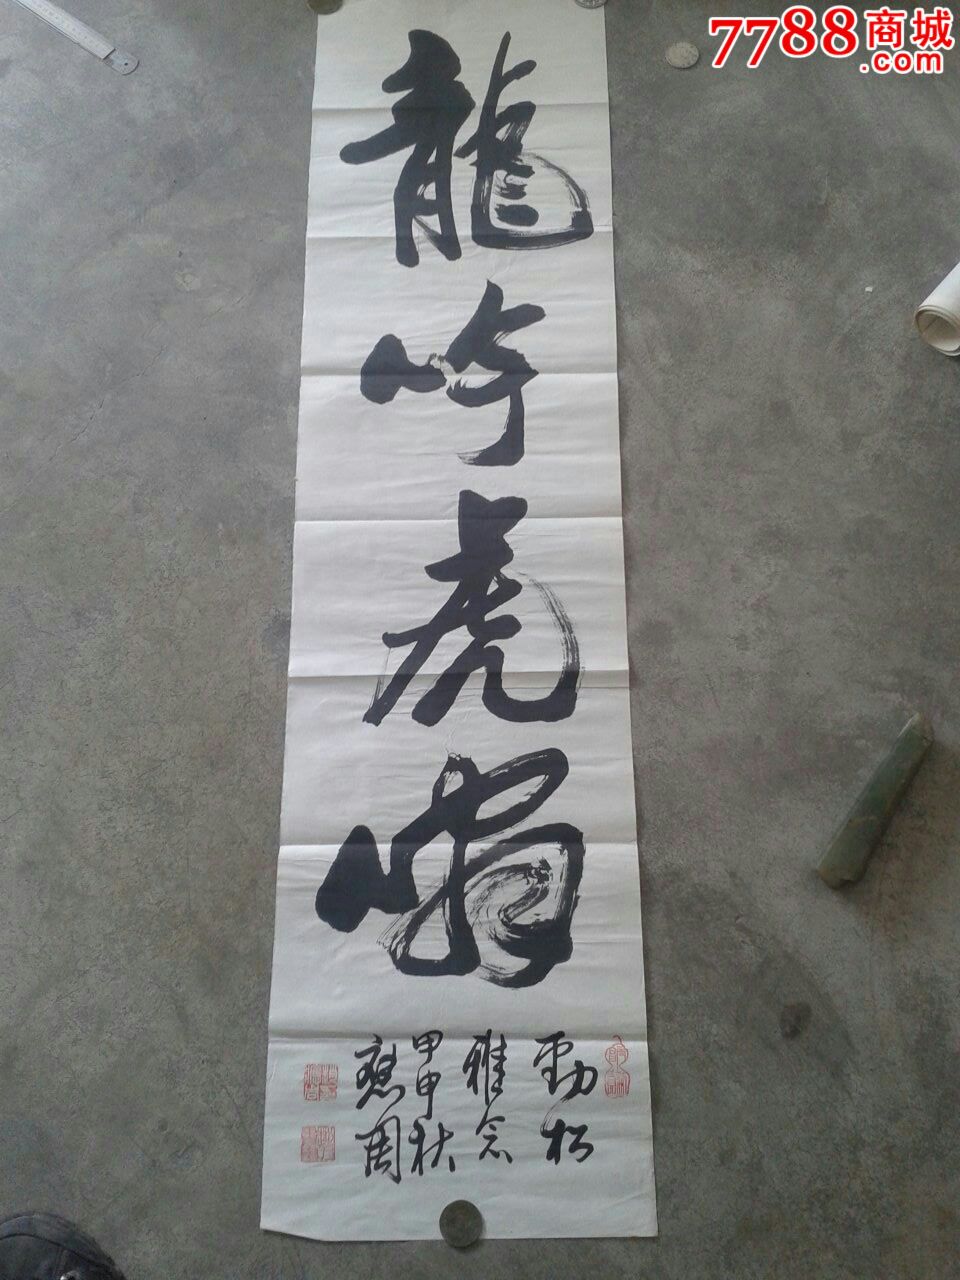 7788商城
.com
龍吟虎嘯
勁松
雅念
甲申秋
周